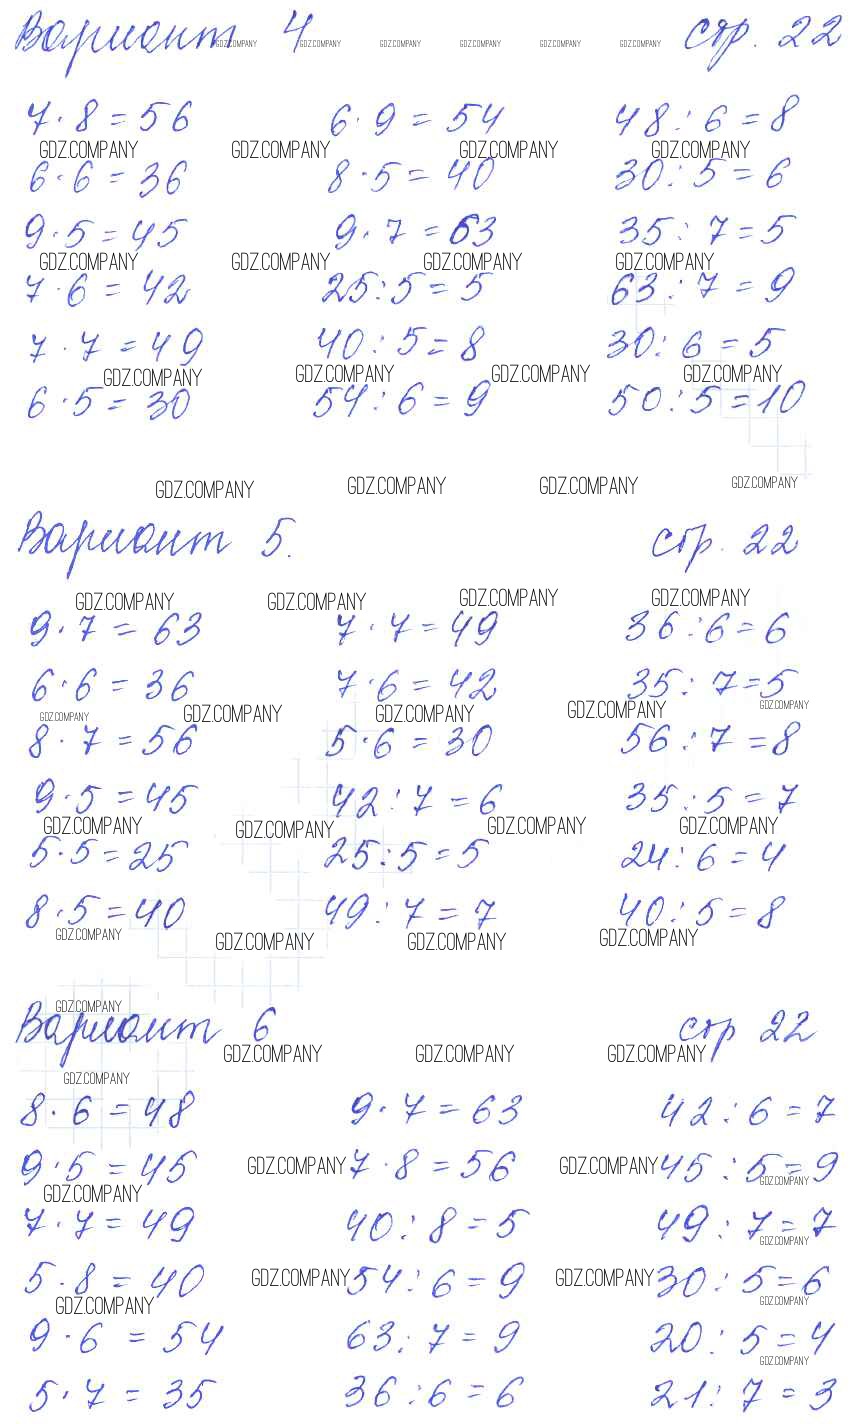 Вариант 4 стр. 22
GDZ.COMPANY GDZ.COMPANY GDZ.COMPANY GDZ.COMPANY GDZ.COMPANY GDZ.COMPANY
7·8=56 6·9=54 48:6=8
GDZ.COMPANY GDZ.COMPANY GDZ.COMPANY GDZ.COMPANY
6·6=36 8·5=40 30:5=6
9·5=45 9·7=63 35:7=5
GDZ.COMPANY GDZ.COMPANY GDZ.COMPANY GDZ.COMPANY
7·6=42 25:5=5 63:7=9
7·7=49 40:5=8 30:6=5
GDZ.COMPANY GDZ.COMPANY GDZ.COMPANY GDZ.COMPANY
6·5=30 54:6=9 50:5=10
GDZ.COMPANY GDZ.COMPANY GDZ.COMPANY GDZ.COMPANY
Вариант 5. стр. 22
GDZ.COMPANY GDZ.COMPANY GDZ.COMPANY GDZ.COMPANY
9·7=63 7·7=49 36:6=6
6·6=36 7·6=42 35:7=5
GDZ.COMPANY GDZ.COMPANY GDZ.COMPANY GDZ.COMPANY GDZ.COMPANY
8·7=56 5·6=30 56:7=8
9·5=45 42:7=6 35:5=7
GDZ.COMPANY GDZ.COMPANY GDZ.COMPANY GDZ.COMPANY
5·5=25 25:5=5 24:6=4
8·5=40 49:7=7 40:5=8
GDZ.COMPANY GDZ.COMPANY GDZ.COMPANY GDZ.COMPANY
GDZ.COMPANY
Вариант 6 стр 22
GDZ.COMPANY GDZ.COMPANY GDZ.COMPANY
GDZ.COMPANY
8·6=48 9·7=63 42:6=7
9·5=45 GDZ.COMPANY 7·8=56 GDZ.COMPANY 45:5=9
GDZ.COMPANY GDZ.COMPANY
7·7=49 40:8=5 49:7=7
GDZ.COMPANY
5·8=40 GDZ.COMPANY 54:6=9 GDZ.COMPANY 30:5=6
GDZ.COMPANY GDZ.COMPANY
9·6=54 63:7=9 20:5=4
GDZ.COMPANY
5·7=35 36:6=6 21:7=3